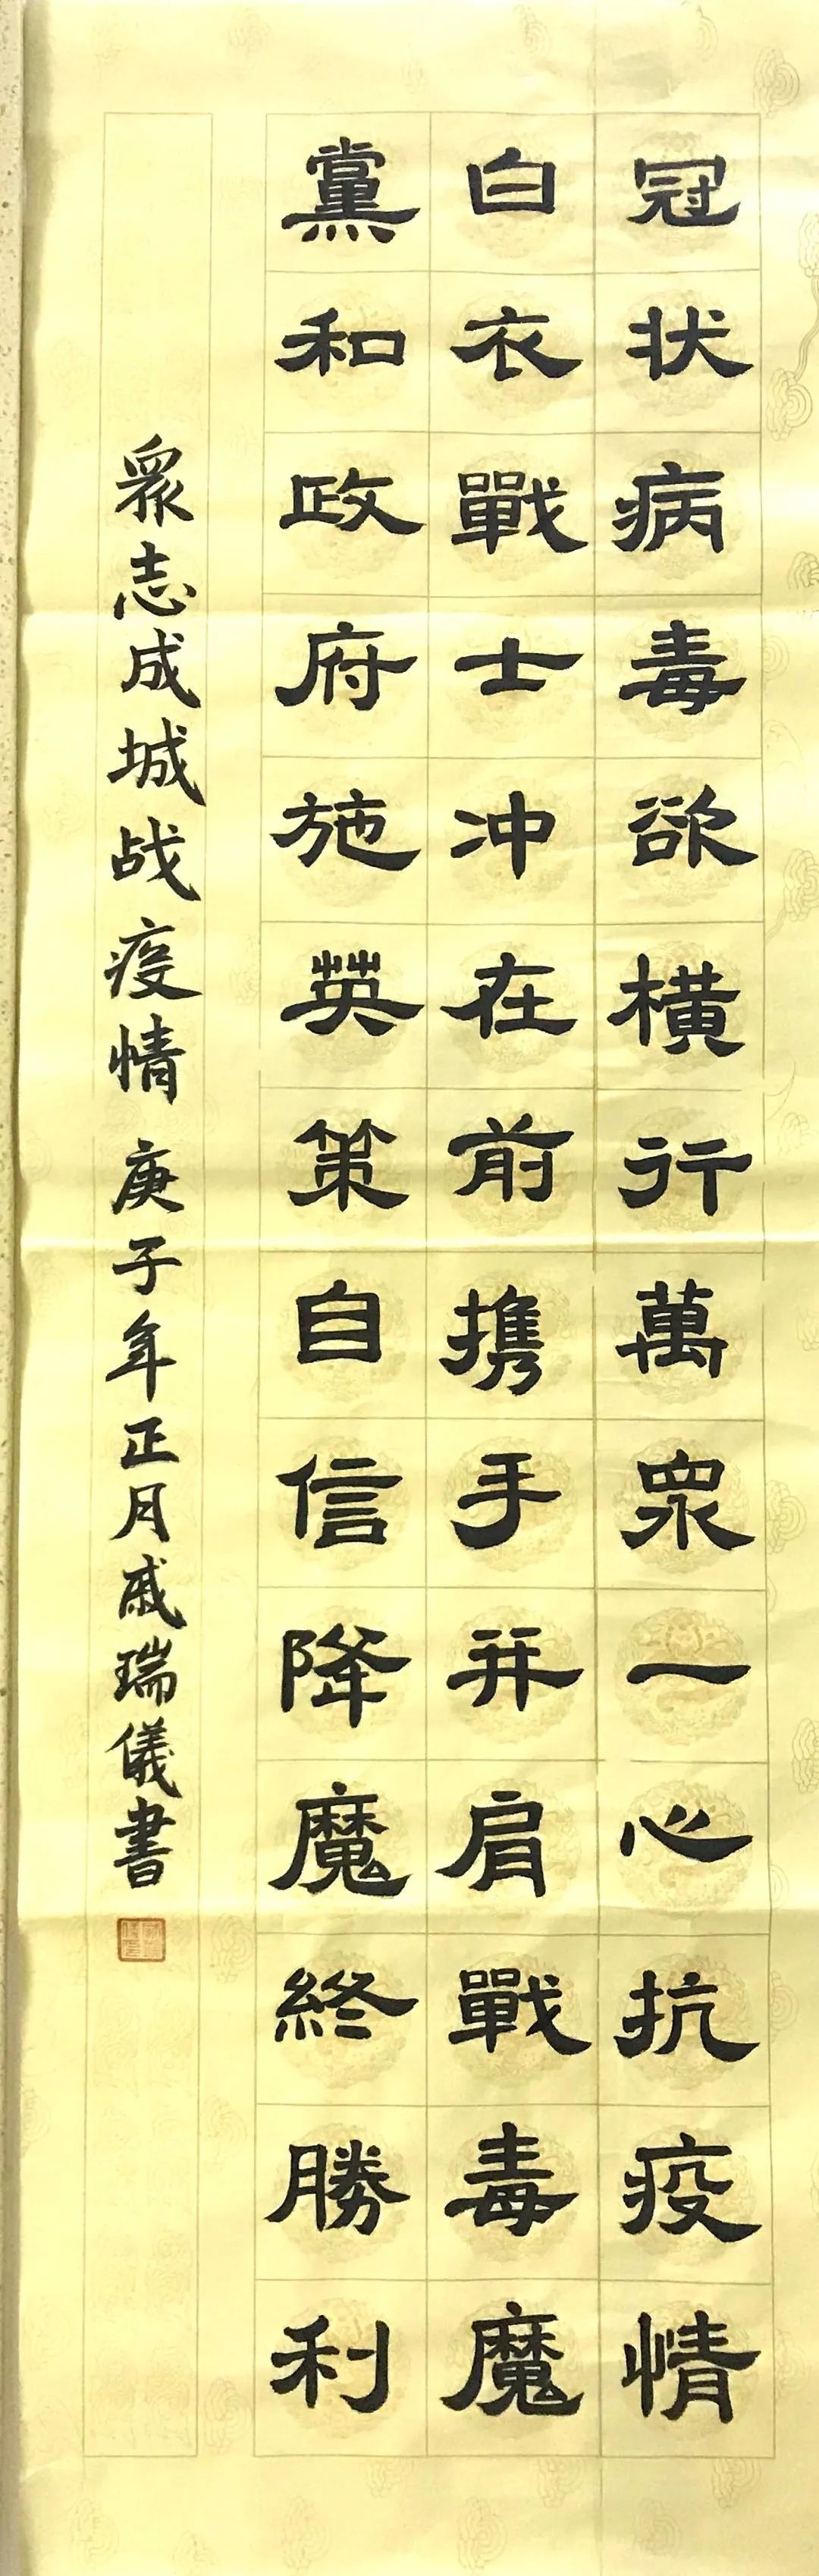 冠状病毒欲横行萬眾一心抗疫情
白衣戰士冲在前携手并肩戰毒魔
黨和政府施英策自信降魔終勝利
眾志成城战疫情 庚子年正月戚瑞儀書